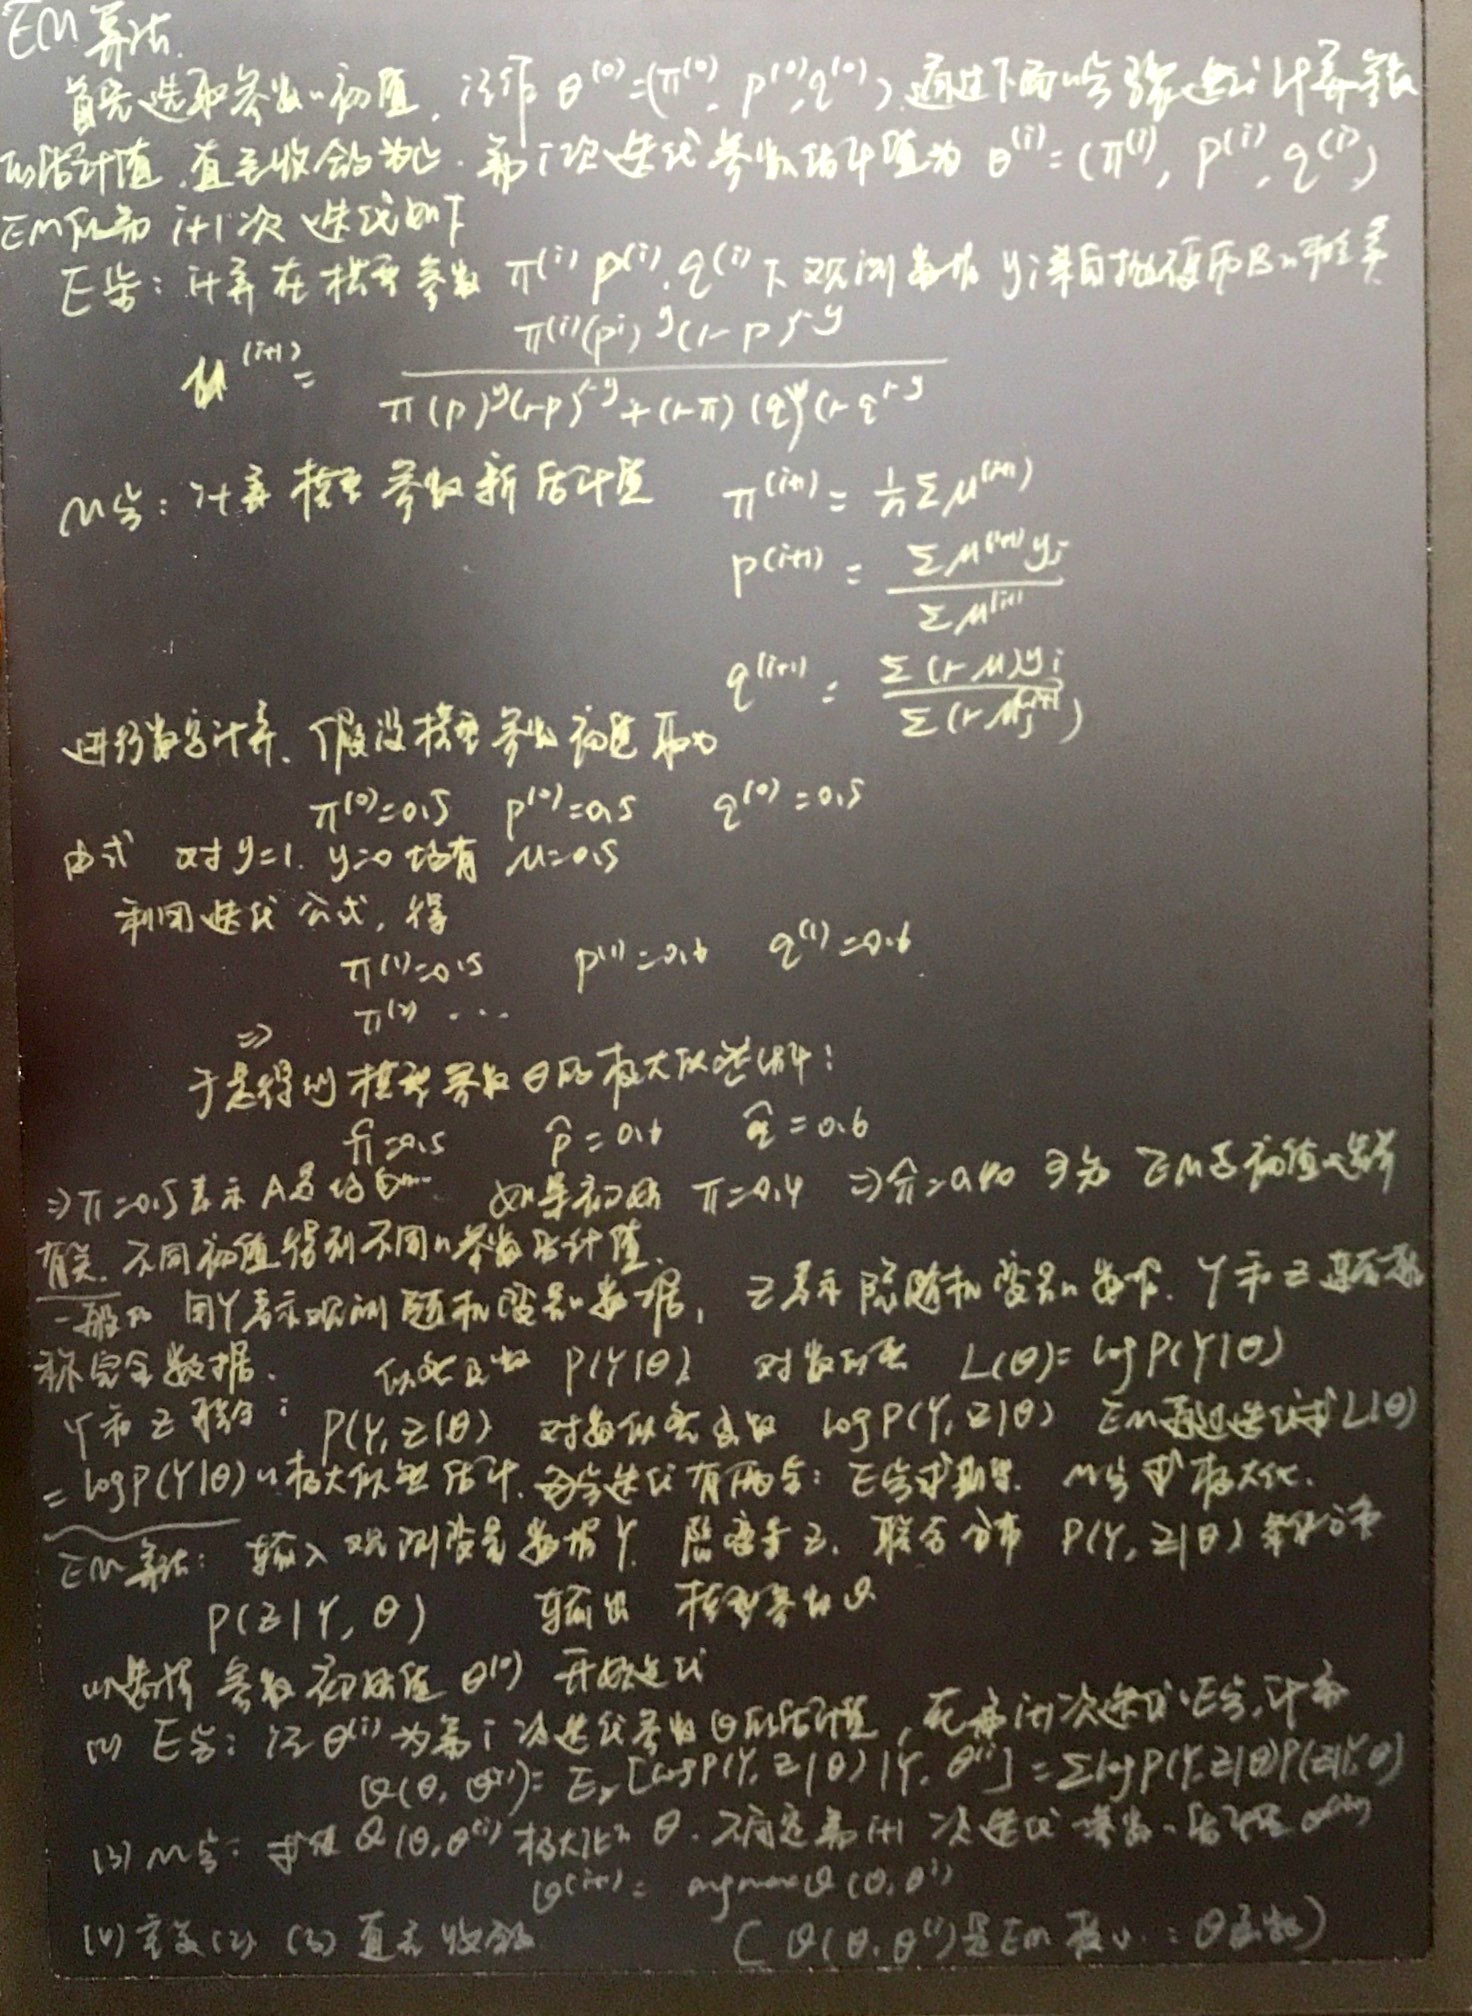 EM算法.
首先选取参数的初值, 记作 θ^(0)=(π^(0), p^(0), q^(0)), 通过下面的步骤迭代计算参数
的估计值, 直至收敛为止. 第i次迭代参数估计值为 θ^(i)=(π^(i), p^(i), q^(i))
EM的第 i+1次 迭代如下
E步: 计算在模型参数 π^(i) p^(i), q^(i) 下观测数据 y_i来自掷硬币B的概率
μ^(i+1) = π^(i)(p^i)^y(1-p)^1-y / π(p)^y(1-p)^1-y+(1-π)(q)^y(1-q^1-y
M步: 计算模型参数新估计值 π^(i+1) = 1/n Σμ^(i+1)
p^(i+1) = Σμ^(i+1)y_j / Σμ^(i+1)
q^(i+1) = Σ(1-μ)y_i / Σ(1-μ_j^(i+1))
进行数字计算. 假设模型参数初值取为
π^(0)=0.5 p^(0)=0.5 q^(0)=0.5
由式 对y=1. y=0 均有 μ=0.5
利用迭代公式, 得
π^(1)=0.5 p^(1)=0.6 q^(1)=0.6
⇒ π^(2) ...
于是得到模型参数θ的极大似然估计:
π̂=0.5 p̂=0.6 q̂=0.6
⇒π=0.5表示 A是均匀... 如果初始 π=0.4 ⇒π̂=0.40 EM与初值选择
有关. 不同初值得到不同的参数估计值.
一般的 用Y表示观测随机变量的数据, Z表示隐随机变量的数据. Y和Z
称完全数据. 似然函数 P(Y|θ) 对数似然 L(θ)=logP(Y|θ)
Y和Z联合: P(Y,Z|θ) 对数似然函数 logP(Y,Z|θ) EM通过迭代求L(θ)
=logP(Y|θ)的极大似然估计. 每步迭代有两步: E步求期望. M步求极大化.
EM算法: 输入 观测变量数据Y. 隐变量Z. 联合分布 P(Y,Z|θ) 条件分布
P(Z|Y,θ) 输出 模型参数θ
(1)选择参数初始值θ^(0) 开始迭代
(2) E步: 记θ^(i)为第i次迭代参数θ的估计值, 在第i+1次迭代的E步, 计算
Q(θ,θ^(i))=E_z[logP(Y,Z|θ)|Y,θ^(i)]=ΣlogP(Y,Z|θ)P(Z|Y,θ)
(3) M步: 求使Q(θ,θ^(i))极大化的θ. 确定第i+1次迭代参数的估计值θ^(i+1)
θ^(i+1)= argmaxQ(θ,θ^i)
(4)重复(2) (3) 直至收敛 ( Q(θ,θ^(i))是EM核心: Q函数)